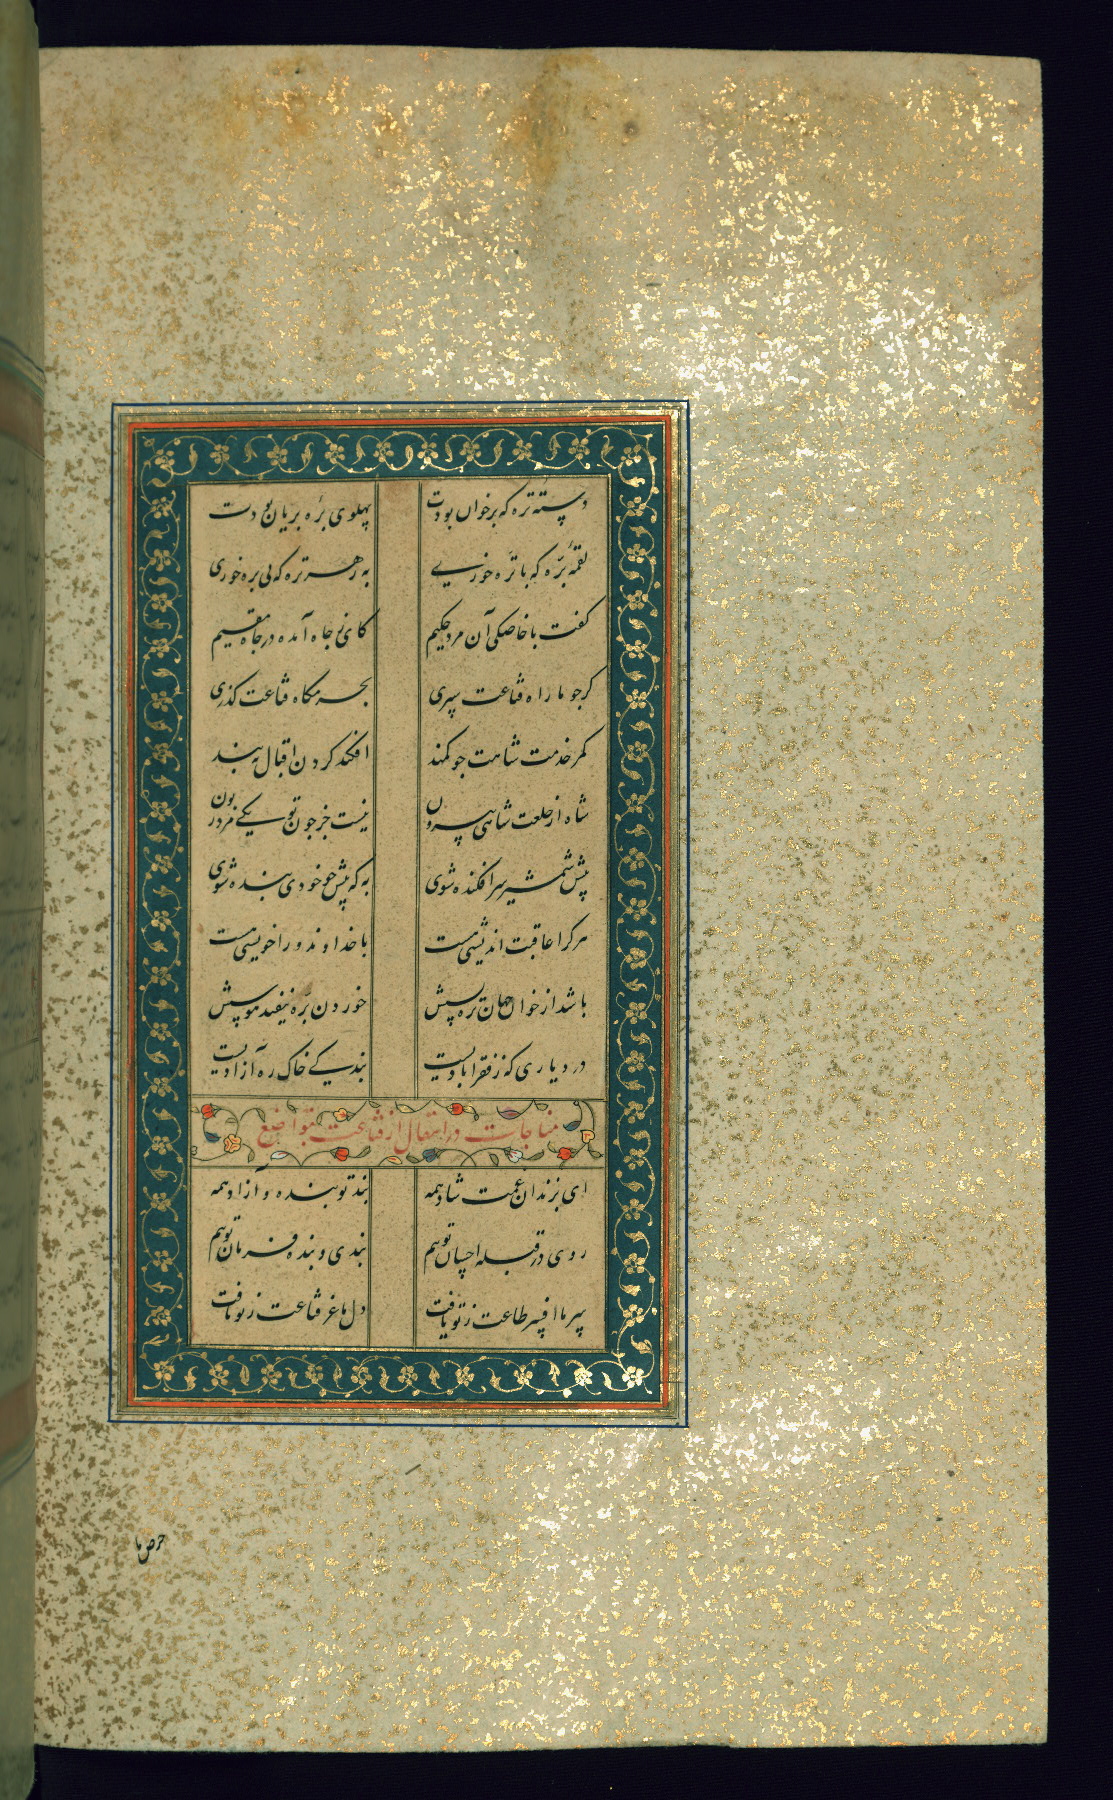 دسته تره که بر خوان بودت پهلوی بره بریان بودت
لقمه بره که با تره خوری به ز هر تره که بی بره خوری
گفت با خاصگی آن مرد حکیم کای نو جاه آمده در جاه مقیم
گر چو ما راه قناعت سپری بحرمگاه قناعت گذری
کمر خدمت شاهت چو کمند افکند گردن اقبال به بند
شاه از خلعت شاهی بیرون نیست جز چون تو یکی مرد زبون
پیش شمشیر سرافکنده شوی به که پیش چو خودی بنده شوی
هر کرا عاقبت اندیشی هست با خداوند ورا خویشی هست
باشد از خوان جهان تره بسش خوردن بره نیفتد هوسش
در دیاری که ز فقر آبادیست بندگی خاک ره آزادیست
مناجات در انتقال از قناعت بتواضع
ای بزندان غمت شاد همه بند تو بنده و آزاد همه
روی در قبله احسان توییم بندی و بنده فرمان توییم
سر ما افسر طاعت ز تو یافت دل ما عز قناعت ز تو یافت
حرص ما